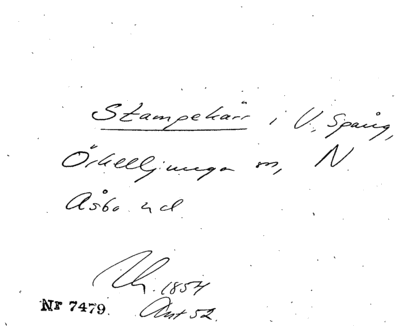 Stampekärr i V. Spång,
Örkelljunga sn, N
Åsbo hd
Lh. 1854
Akt 52.
Nr 7479.